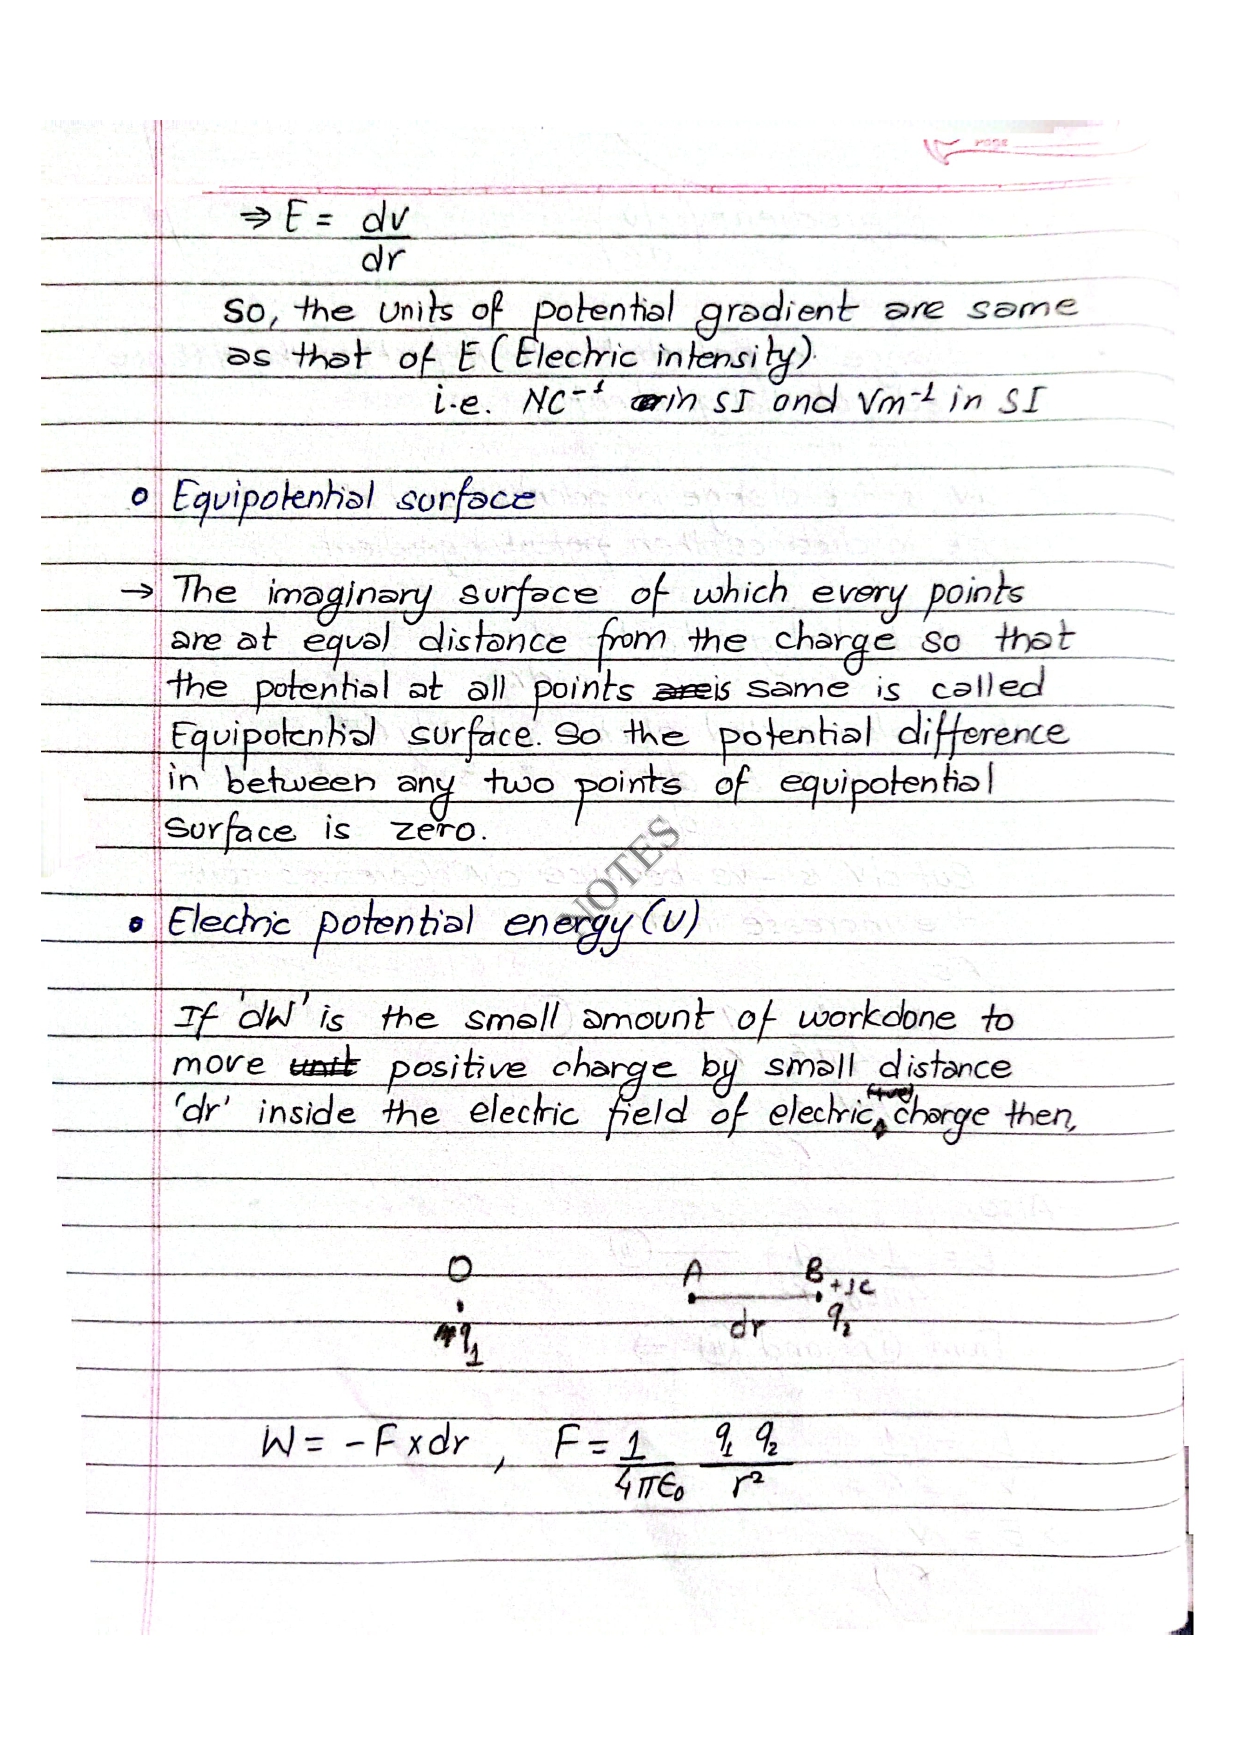 PAGE
⇒ E = dv/dr
So, the units of potential gradient are same
as that of E (Electric intensity).
i.e. NC⁻¹ in SI and Vm⁻¹ in SI
o Equipotential surface
→ The imaginary surface of which every points
are at equal distance from the charge so that
the potential at all points are is same is called
Equipotential surface. So the potential difference
in between any two points of equipotential
surface is zero.
NOTES
• Electric potential energy (U)
If 'dW' is the small amount of workdone to
move unit positive charge by small distance
(+ve)
'dr' inside the electric field of electric charge then,
O A B +1C
dr q₂
q₁
W = -F x dr , F = 1/4πϵ₀ q₁ q₂/r²